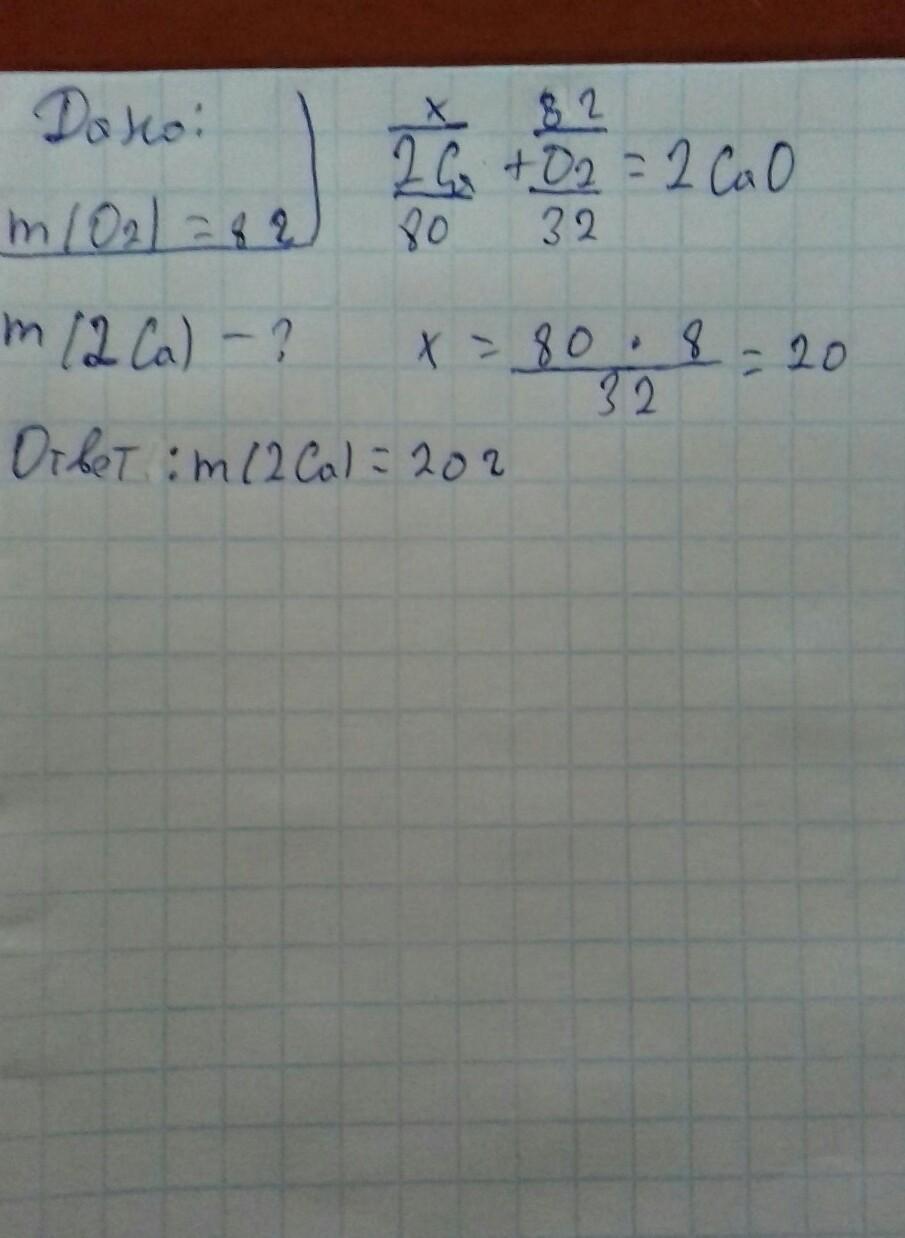 Дано:
m(O2) = 8 г
m(2Ca) - ?
x 8 г
2Ca + O2 = 2CaO
80 32
x = 80 · 8 / 32 = 20
Ответ: m(2Ca) = 20 г